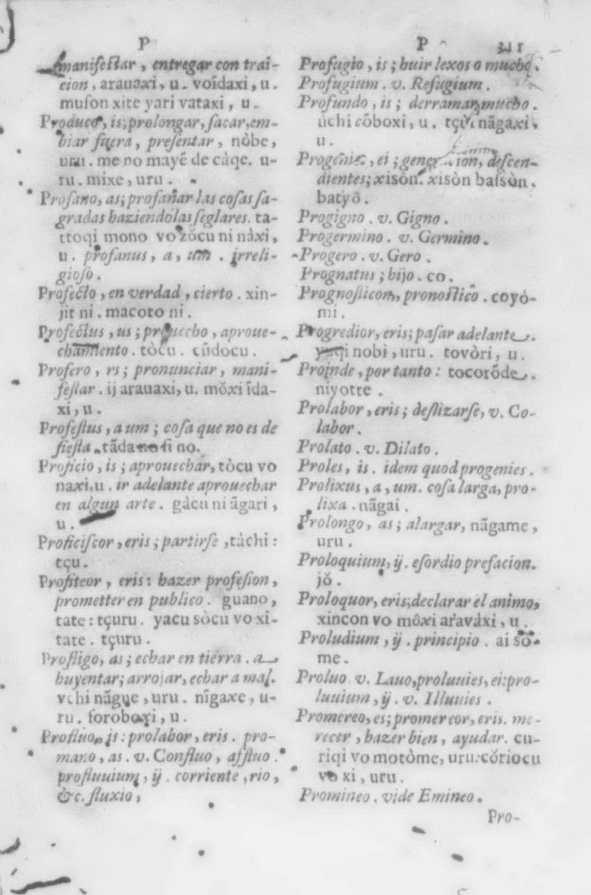 P
manifestar, entregar con trai-
cion, arauaxi, u. voidaxi, u.
muson xite yari vataxi, u.
Produco, is; prolongar, sacar, em-
biar fuera, presentar, nòbe,
uru. me no mayĕ de càqe. u-
ru. mixe, uru.
Profano, as; profañar las cosas sa-
gradas haziendolas seglares. ta-
ttoqi mono vo zócu ni nàxi,
u. profanus, a, um. irreli-
gioso.
Profecto, en verdad, cierto. xin-
jit ni. macoto ni.
Profectus, us; prouecho, aproue-
chamiento. tòcu. cŭdocu.
Profero, rs; pronunciar, mani-
festar. ij arauaxi, u. mŏxi ĩda-
xi, u.
Profestus, a um; cosa que no es de
fiesta. tãda no fi no.
Proficio, is; aprouechar, tòcu vo
naxi, u. ir adelante aprouechar
en algun arte. gàcu ni ãgari,
u.
Proficiscor, eris; partirse, tàchi:
tçu.
Profiteor, eris: hazer profesion,
prometter en publico. guano,
tate: tçuru. yacu sòcu vo xi-
tate. tçuru.
Profligo, as; echar en tierra. a-
huyentar; arrojar, echar a mal.
vchi nãgue, uru. nĩgaxe, u-
ru. foroboxi, u.
Profluo, is: prolabor, eris. pro-
mano, as. v. Confluo, affluo.
profluuium, ij. corriente, rio,
&c. fluxio,
P 311
Profugio, is; huir lexos o mucho.
Profugium. v. Refugium.
Profundo, is; derramar mucho.
ùchi cŏboxi, u. tçũi nãgaxi,
u.
Progenies, ei; generacion, descen-
dientes; xisòn. xisòn batsòn.
batyŏ.
Progigno. v. Gigno.
Progermino. v. Germino.
Progero. v. Gero.
Prognatus; hijo. co.
Prognosticon, pronostico. coyò-
mi.
Progredior, eris; pasar adelante.
yuqi nobi, uru. tovòri, u.
Proinde, por tanto: tocorŏde.
niyotte.
Prolabor, eris; deslizarse, v. Co-
labor.
Prolato. v. Dilato.
Proles, is. idem quod progenies.
Prolixus, a, um. cosa larga, pro-
lixa. nãgai.
Prolongo, as; alargar, nãgame,
uru.
Proloquium, ij. esordio prefacion.
jŏ.
Proloquor, eris; declarar el animo,
xincon vo mŏxi aravàxi, u.
Proludium, ij. principio. ai sŏ-
me.
Proluo v. Lauo, proluuies, ei: pro-
luuium, ij. v. Illuuies.
Promereo, es; promercor, eris. me-
recer, hazer bien, ayudar. cu-
riqi vo motòme, uru: cŏriocu
vo xi, uru.
Promineo. vide Emineo.
Pro-